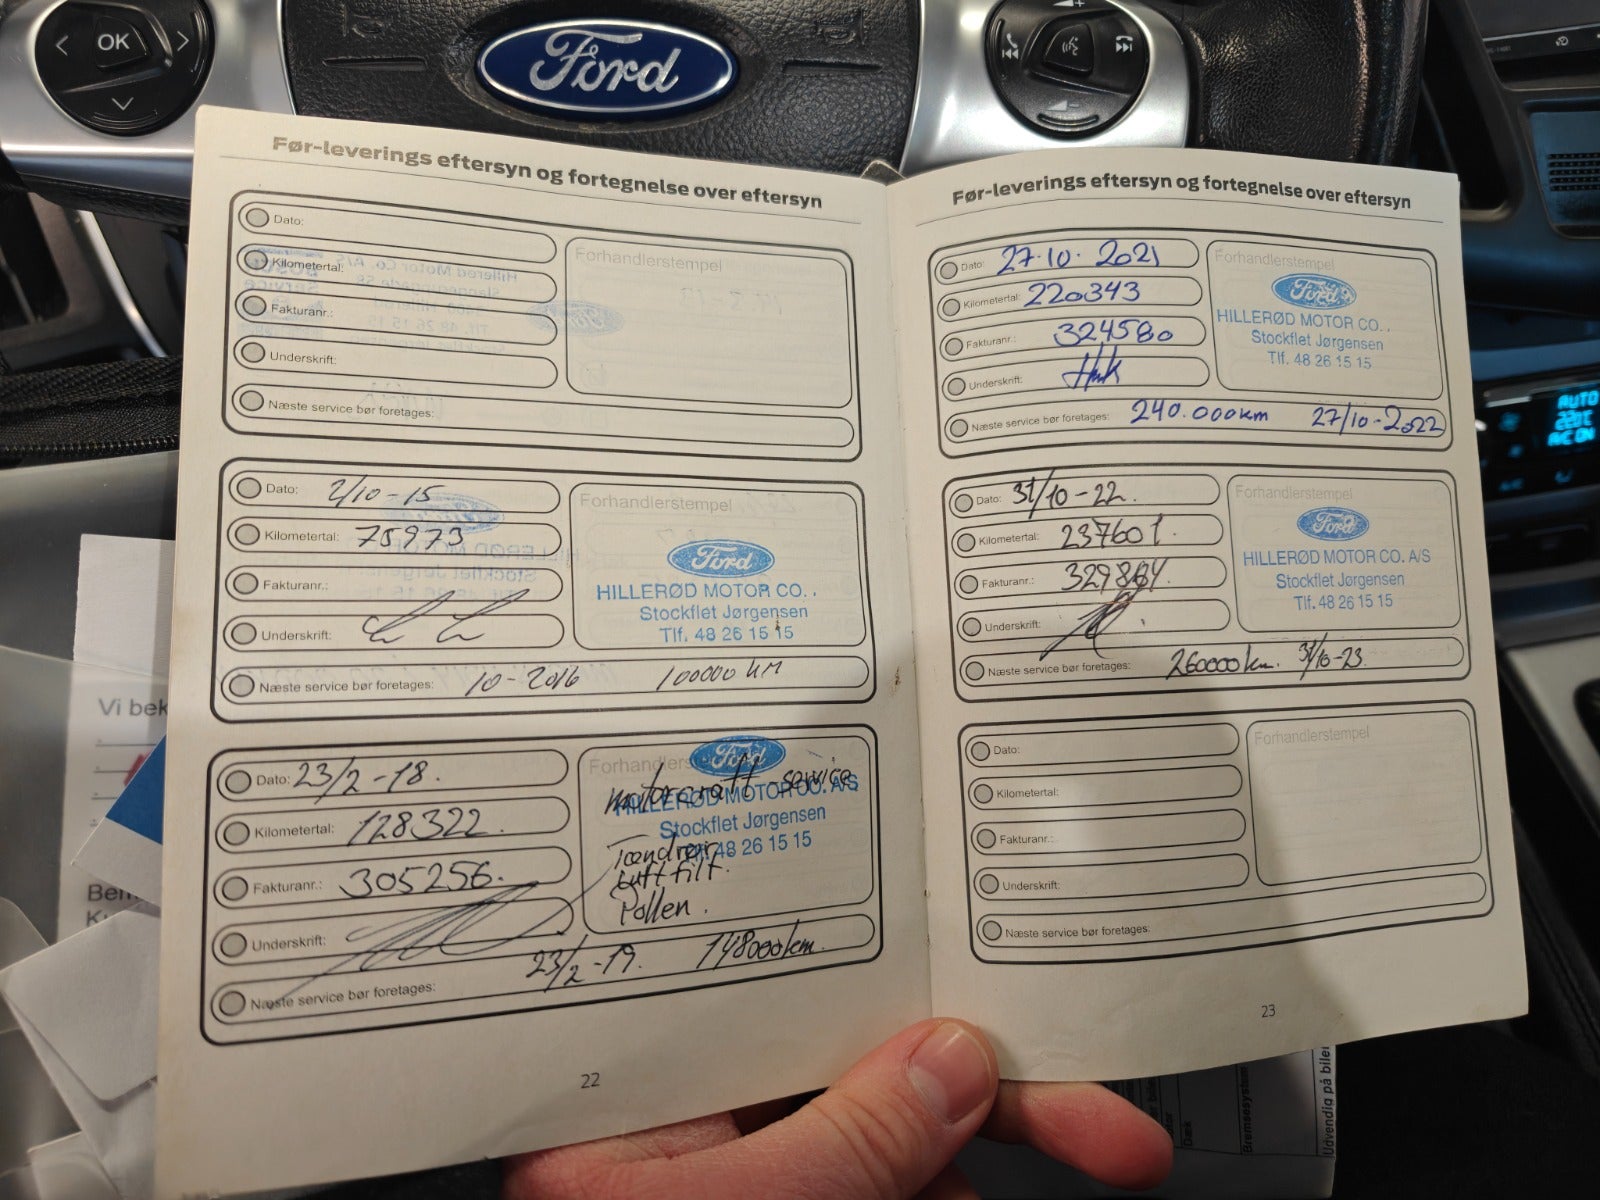 OK
Ford
Før-leverings eftersyn og fortegnelse over eftersyn
Dato:
Kilometertal:
Fakturanr.:
Underskrift:
Næste service bør foretages:
Forhandlerstempel
Dato: 2/10-15
Kilometertal: 75973
Fakturanr.:
Underskrift:
Næste service bør foretages: 10-2016 100000 KM
Forhandlerstempel
Ford
HILLERØD MOTOR CO.
Stockflet Jørgensen
Tlf. 48 26 15 15
Dato: 23/2-18.
Kilometertal: 128322.
Fakturanr.: 305256.
Underskrift:
Næste service bør foretages: 23/2-19. 148000km.
Ford
motorcraft-service
HILLERØD MOTOR CO. A/S
Stockflet Jørgensen
48 26 15 15
Tændrør
Luftfilt.
Pollen.
22
Før-leverings eftersyn og fortegnelse over eftersyn
Dato: 27.10.2021
Kilometertal: 220343
Fakturanr.: 324580
Underskrift:
Næste service bør foretages: 240.000km 27/10-2022
Forhandlerstempel
Ford
HILLERØD MOTOR CO.
Stockflet Jørgensen
Tlf. 48 26 15 15
Dato: 31/10-22.
Kilometertal: 237601.
Fakturanr.:
Underskrift:
Næste service bør foretages: 260000km. 31/10-23.
Forhandlerstempel
Ford
HILLERØD MOTOR CO. A/S
Stockflet Jørgensen
Tlf. 48 26 15 15
Dato:
Kilometertal:
Fakturanr.:
Underskrift:
Næste service bør foretages:
Forhandlerstempel
23
Vi bek
AUTO
A/C ON
Dæk
Udvendig på bilen